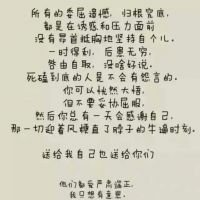 所有的委屈遗憾，归根究底，
都是在诱惑和压力面前
没有昂首挺胸地坚持自个儿。
一时得利，后患无穷，
咎由自取，没啥好说。
死磕到底的人是不会有怨言的。
你可以恍然大悟，
但不要妥协屈服，
然后你总有一天会感谢自己，
那一切迎着风梗直了脖子的牛逼时刻。
送给我自己也送给你们
他们都爱严肃端正，
我只想有意思。